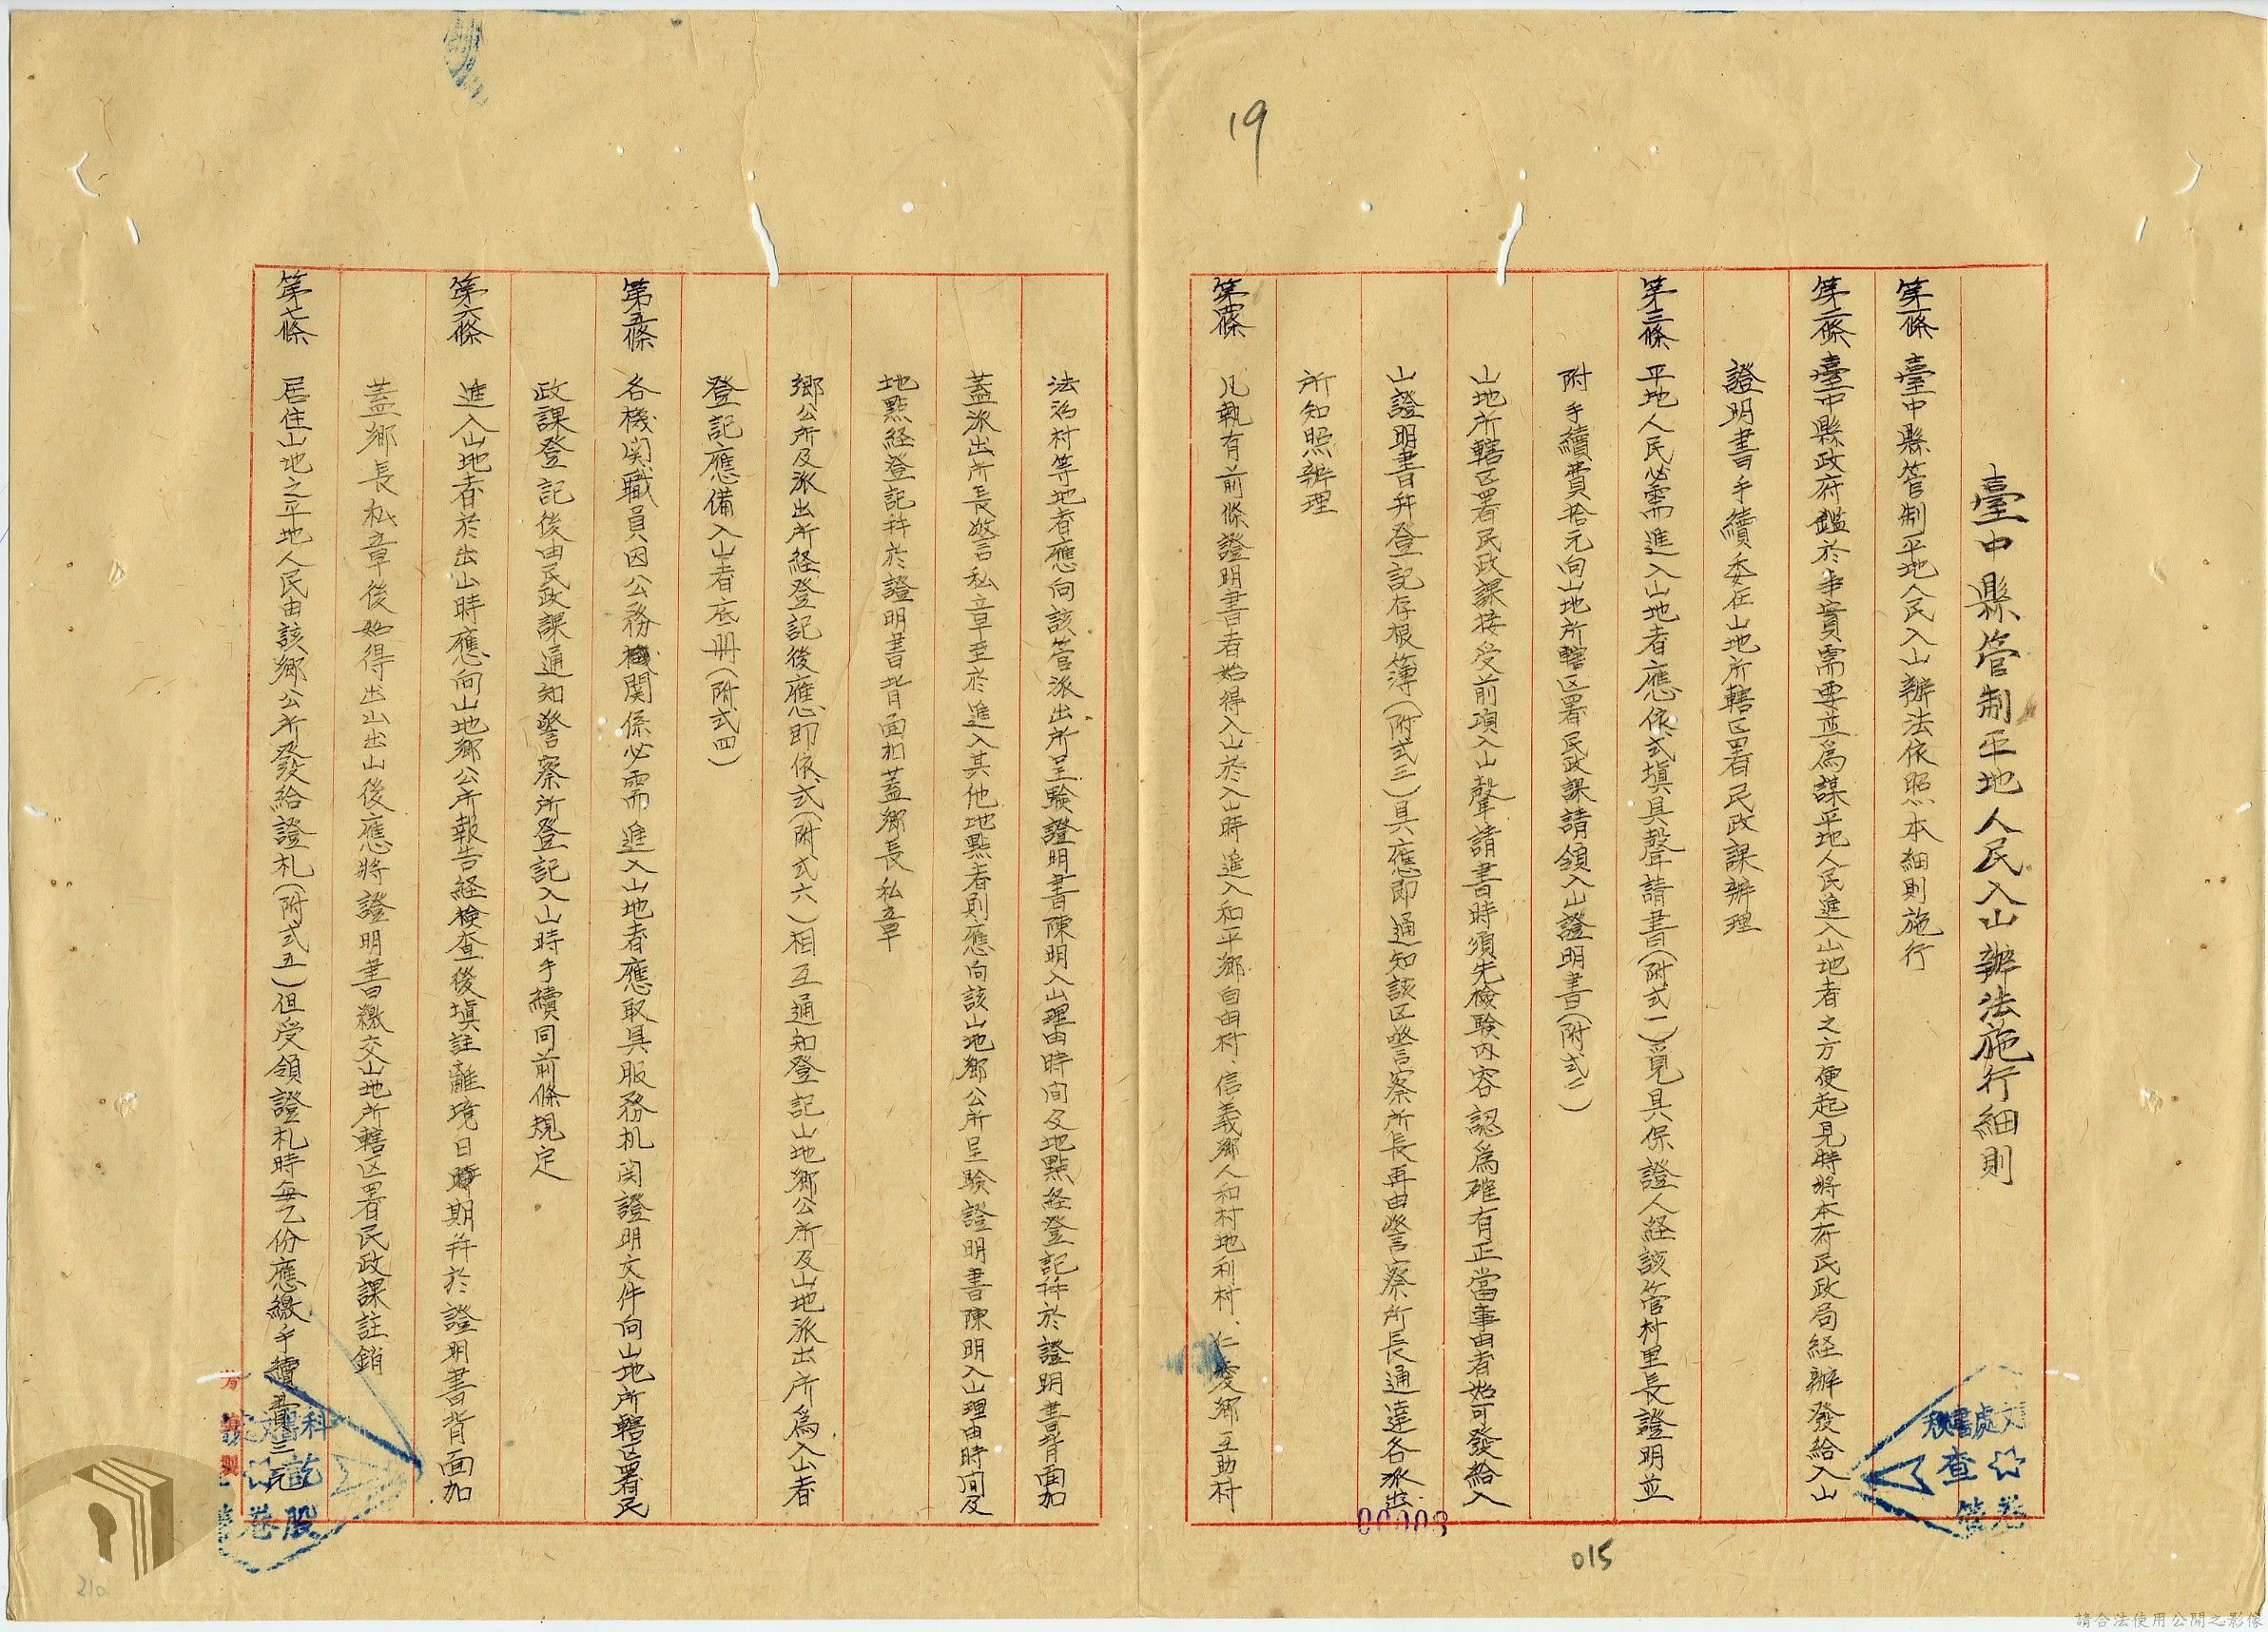 19
臺中縣管制平地人民入山辦法施行細則
第一條　臺中縣管制平地人民入山辦法依照本細則施行
第二條　臺中縣政府鑑於事實需要並為謀平地人民進入山地者之方便起見時將本府民政局経辦發給入山
證明書手續委任山地所轄区署民政課辦理
第三條　平地人民必需進入山地者應依式填具聲請書(附式一)覓具保證人経該管村里長證明並
附手續費拾元向山地所轄区署民政課請領入山證明書(附式二)
山地所轄区署民政課接受前項入山聲請書時須先檢驗內容認為確有正當事由者始可發給入
山證明書并登記存根簿(附式三)具應即通知該区警察所長再由警察所長通達各派出
所知照辦理
第四條　凡執有前條證明書者始得入山於入山時進入和平鄉自由村、信義鄉人和村地利村、仁愛鄉互助村
法治村等地者應向該管派出所呈驗證明書陳明入山理由時间及地點経登記并於證明書背面加
蓋派出所長警私章至於進入其他地點者則應向該山地鄉公所呈驗證明書陳明入山理由時间及
地點経登記并於證明書背面加蓋鄉長私章
鄉公所及派出所経登記後應即依式(附式六)相互通知登記山地鄉公所及山地派出所為入山者
登記應備入山者底冊(附式四)
第五條　各機関職員因公務機關係必需進入山地者應取具服務机関證明文件向山地所轄区署民
政課登記後由民政課通知警察所登記入山時手續同前條規定
第六條　進入山地者於出山時應向山地鄉公所報告経檢查後填註離境日時期并於證明書背面加
蓋鄉長私章後始得出山出山後應將證明書繳交山地所轄区署民政課註銷
第七條　居住山地之平地人民由該鄉公所發給證札(附式五)但受領證札時每乙份應繳手續費三元
00008
015
秘書處文
查
管卷
科
訖
股
卷
製
210
請合法使用公開之影像